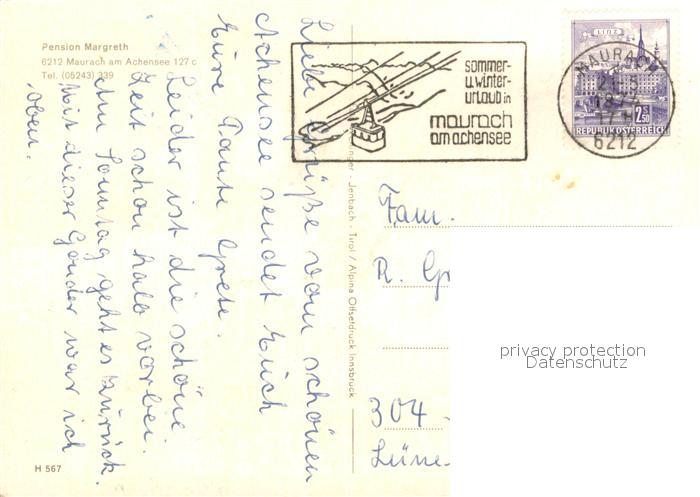 Pension Margreth
6212 Maurach am Achensee 127 c
Tel. (05243) 339
Liebe Grüße vom schönen
Achensee sendet Euch
Eure Tante Grete.
Leider ist die schöne
Zeit schon halb vorbei.
Am Sonntag geht es zurück.
Mit dieser Gondel war ich
oben.
H 567
sommer-
u. winter-
urlaub in
maurach
am achensee
LINZ
2 S 50
REPUBLIK ÖSTERREICH
MAURACH
6212
Jenbach - Tirol / Alpina Offsetdruck Innsbruck
Fam.
R. Gr
304
Lüne-
privacy protection
Datenschutz